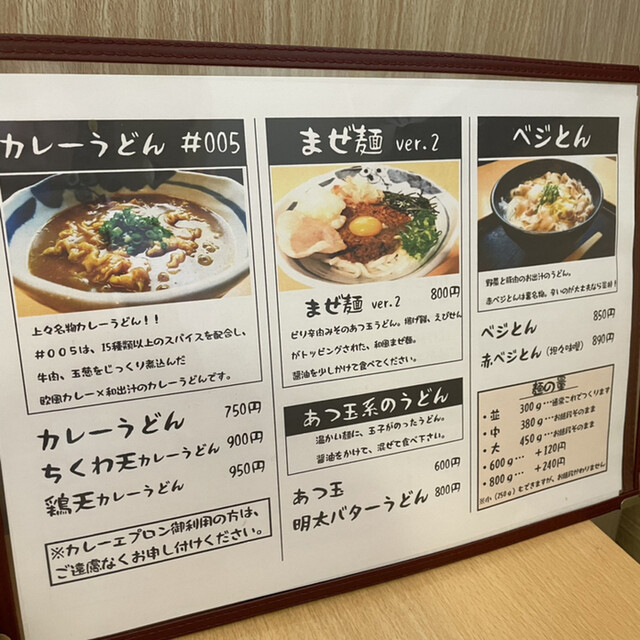 カレーうどん #005
上々名物カレーうどん！！
#005は、15種類以上のスパイスを配合し、
牛肉、玉葱をじっくり煮込んだ
欧風カレー×和出汁のカレーうどんです。
カレーうどん 750円
ちくわ天カレーうどん 900円
鶏天カレーうどん 950円
※カレーエプロン御利用の方は、
ご遠慮なくお申し付けください。
まぜ麺 ver.2
まぜ麺 ver.2 800円
ピリ辛肉みそのあつ玉うどん。揚げ麺、えびせん
がトッピングされた、和風まぜ麺。
醤油を少しかけて食べてください。
あつ玉系のうどん
温かい麺に、玉子がのったうどん。
醤油をかけて、混ぜて食べ下さい。
あつ玉 600円
明太バターうどん 800円
ベジとん
野菜と豚肉のお出汁のうどん。
赤ベジとんは裏名物。辛いのが大丈夫なら是非！
ベジとん 850円
赤ベジとん(坦々味噌) 890円
麺の量
・並 300g…通常これでつくります
・中 380g…お値段そのまま
・大 450g…お値段そのまま
・600g… +120円
・800g… +240円
※小(250g)もできますが、お値段かわりません